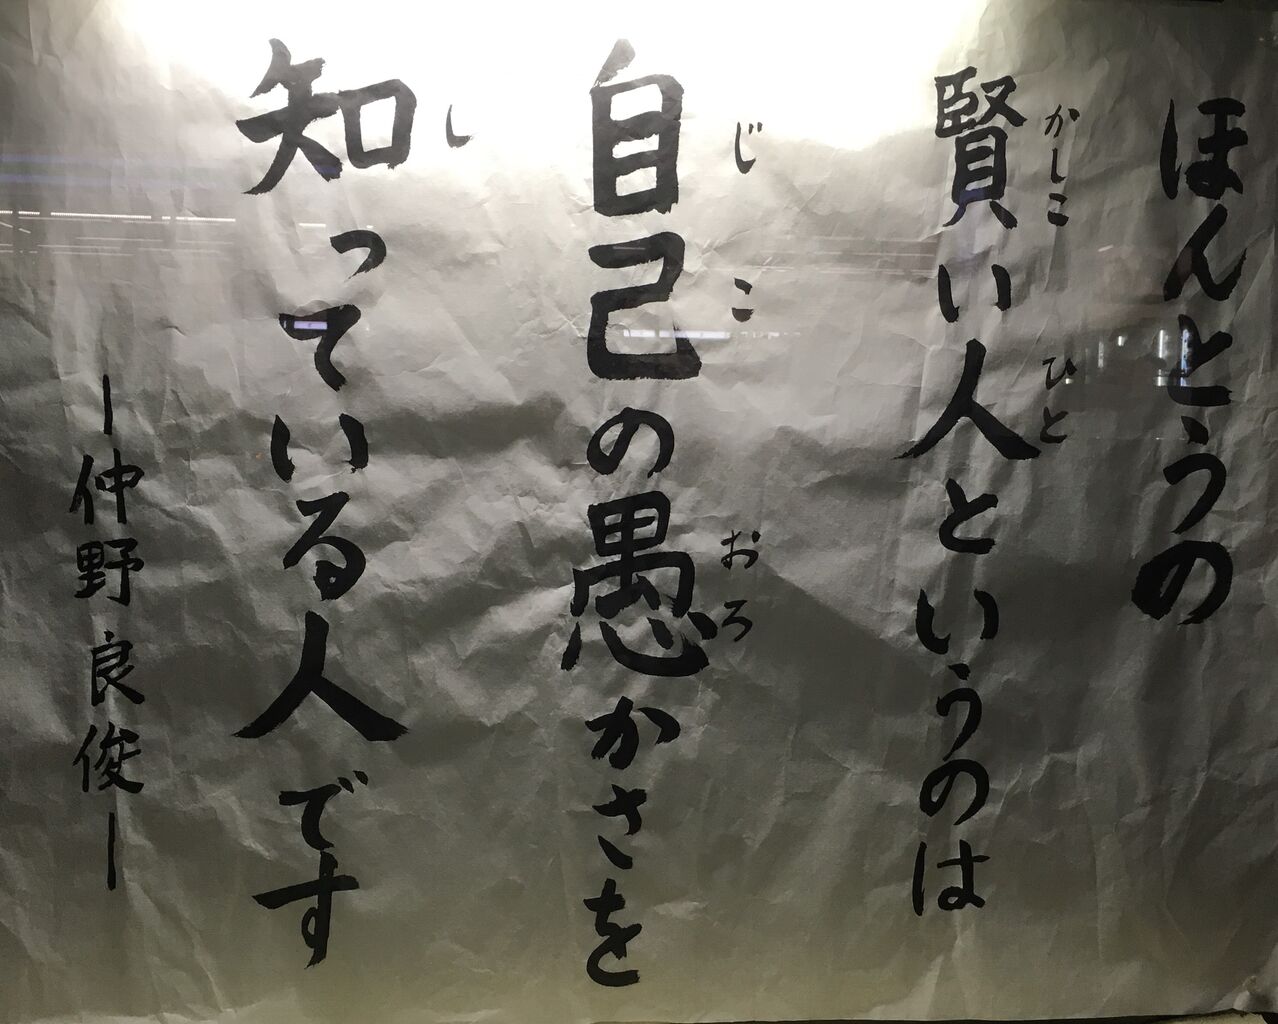 ほんとうの
賢い人というのは
かしこ ひと
自己の愚かさを
じこ おろ
知っている人です
し
ー仲野良俊ー